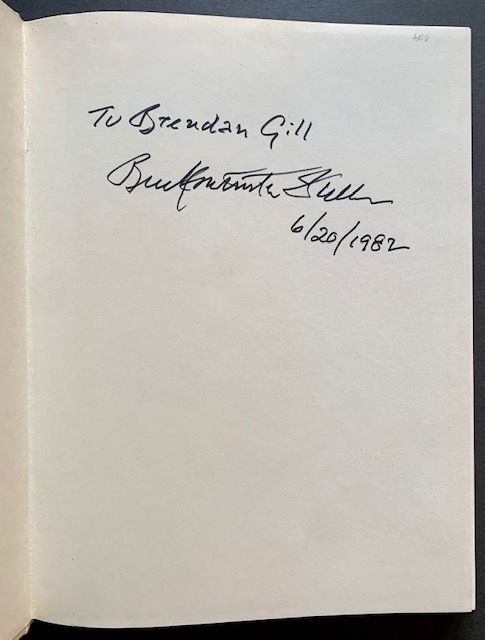 To Brendan Gill
Buckminster Fuller
6/20/1982